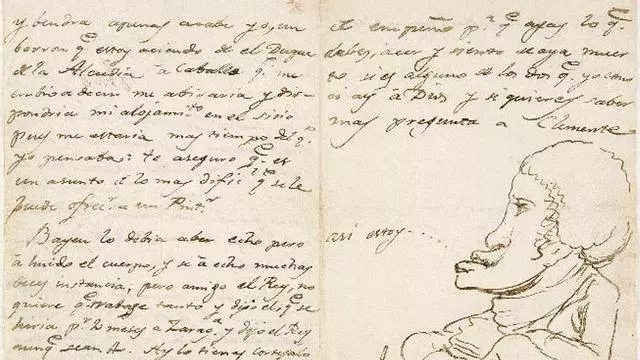 y bendra apenas acabe yo, un
borron q.e estoy aciendo de el Duque
de la Alcudia á Caballo q.e me
embio á decir me abisaria y dis-
pondria mi alojam.to en el sitio
pues me estaria mas tiempo del q.e
yo pensaba: te aseguro q.e es
un asunto d lo mas dificil q.e se le
puede ofrecer a un Pint.r
Bayeu lo debia aber echo pero
á huido el cuerpo, y se á echo muchas
beces instancia, pero amigo el Rey, no
quiere q.e trabage tanto y dijo el q.e se
haria p.r 2 meses a Zarag.a y dijo el Rey
aunq.e sean 4. Ay lo tienes
de empeño p.r q.e ayas lo q.e
debes acer y siento se aya muer
to si es alguno de los dos q.e yo cono
ci ay á Dios y si quieres saber
mas pregunta a Clemente
asi estoy...